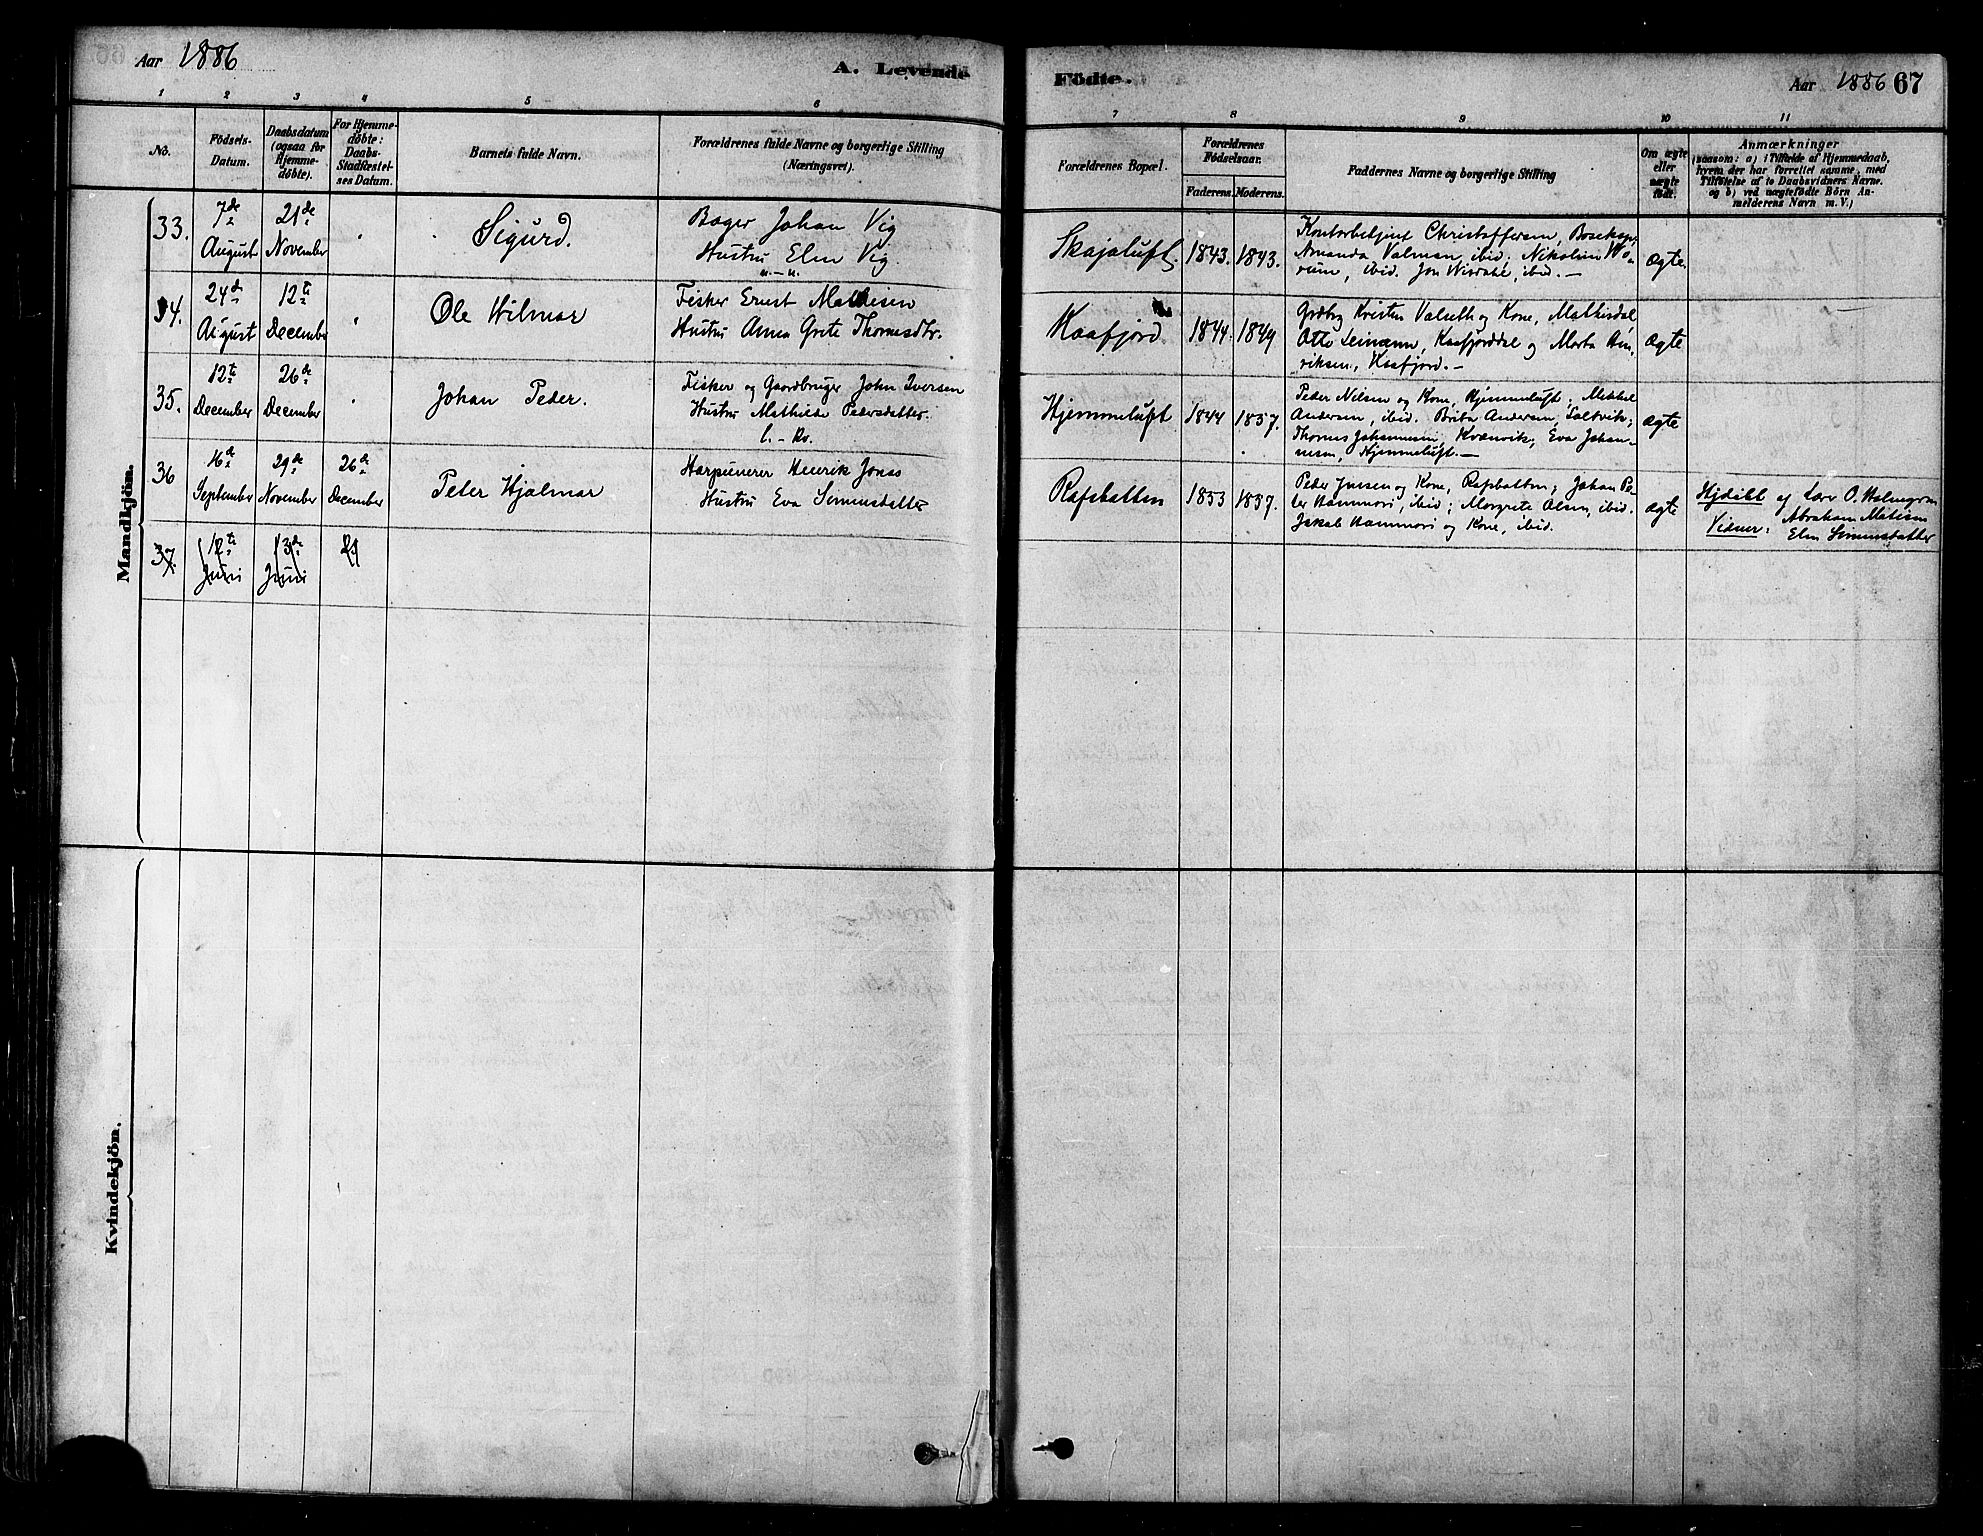 Aar 1886
A. Levende
Födte.
Aar 1886 67
1 2 3 4 5 6
7 8 9 10 11
No.
Födsels-
Datum.
Daabsdatum
(ogsaa for
Hjemme-
döbte).
For Hjemme-
döbte:
Daabs-
Stadfæstel-
ses Datum.
Barnets fulde Navn.
Forældrenes fulde Navne og borgerlige Stilling
(Næringsvei).
Forældrenes Bopæl.
Forældrenes
Födselsaar.
Faderens. Moderens.
Faddernes Navne og borgerlige Stilling
Om ægte
eller
uægte
födt.
Anmærkninger
(saasom: a) i Tilfælde af Hjemmedaab,
hvem der har forrettet samme, med
Tilföielse af to Daabsvidners Navne.
og b) ved uægtefödte Börn An-
melderens Navn m. V.)
Mandkjön.
33.
7de
August
21de
November
Sigurd.
Bager Johan Vig
Hustru Elen Vig.
n. - n.
Skajaluft
1843. 1843.
Kontorbetjent Christoffersen, Bosekop;
Amanda Valman, ibid. Nikoline
ibid. Jon ibid. —
ægte.
34.
24de
August
12te
December
Ole Hilmar
Fisker Ernst Mathisen
Hustru Anna Grete Thomasdtr.
Kaafjord
1844. 1849
Kristen Valseth og Kone, Mathisdal,
Otto Leinænn, Kaafjorddal og Marta Hen-
riksen, Kaafjord. —
ægte
35.
12te
December
26de
December
Johan Peder.
Fisker og Gaardbruger John Iversen
Hustru Mathilde Pedersdatter.
l. - kv.
Hjemmeluft
1844 1857.
Peder Nilsen og Kone, Hjemmeluft; Mikkel
Andersen, ibid. Brita Andersen, Saltvik;
Thomas Johannesen, Kvænvik, Eva Johan-
nesen, Hjemmeluft. —
ægte
36
16de
September
29de
November
26de
December
Peter Hjalmar
Harpunerer Henrik Jonas
Hustru Eva Simonsdatter
Rafsbotten
1853 1857.
Peder og Kone, Rafsbotten; Johan Pe-
ter Hammari, ibid; Margrete Olsen, ibid.
Jakob Hammari og Kone, ibid.
ægte
Hjdöbt af Lærer O. Holmgren
Vidner: Abraham Matisen
Elen Simonsdatter
37.
12te
Juni
3de
Juni
Kvindekjön.